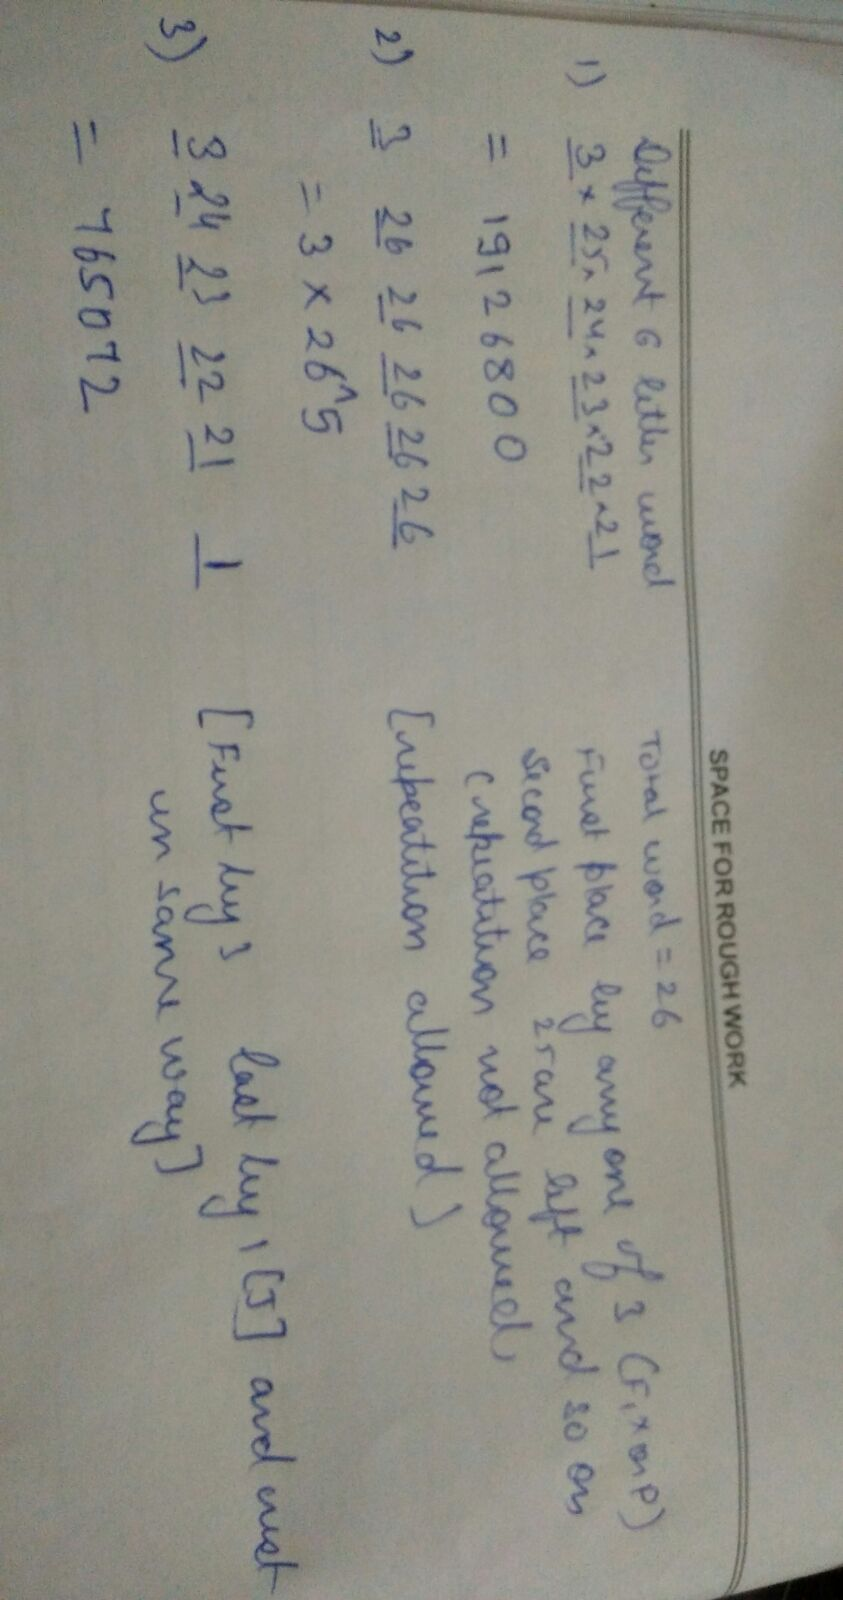 SPACE FOR ROUGH WORK
Different 6 letter word
Total word = 26
1) 3 × 25 × 24 × 23 × 22 × 21
First place by any one of 3 (F, X or P)
Second place 25 are left and so on
= 19126800
(repeatition not allowed)
2) 3 26 26 26 26 26
[repeatition allowed)
= 3 × 26^5
3) 3 24 23 22 21 1
[First by 3 last by 1 [J] and rest
in same way]
= 765072